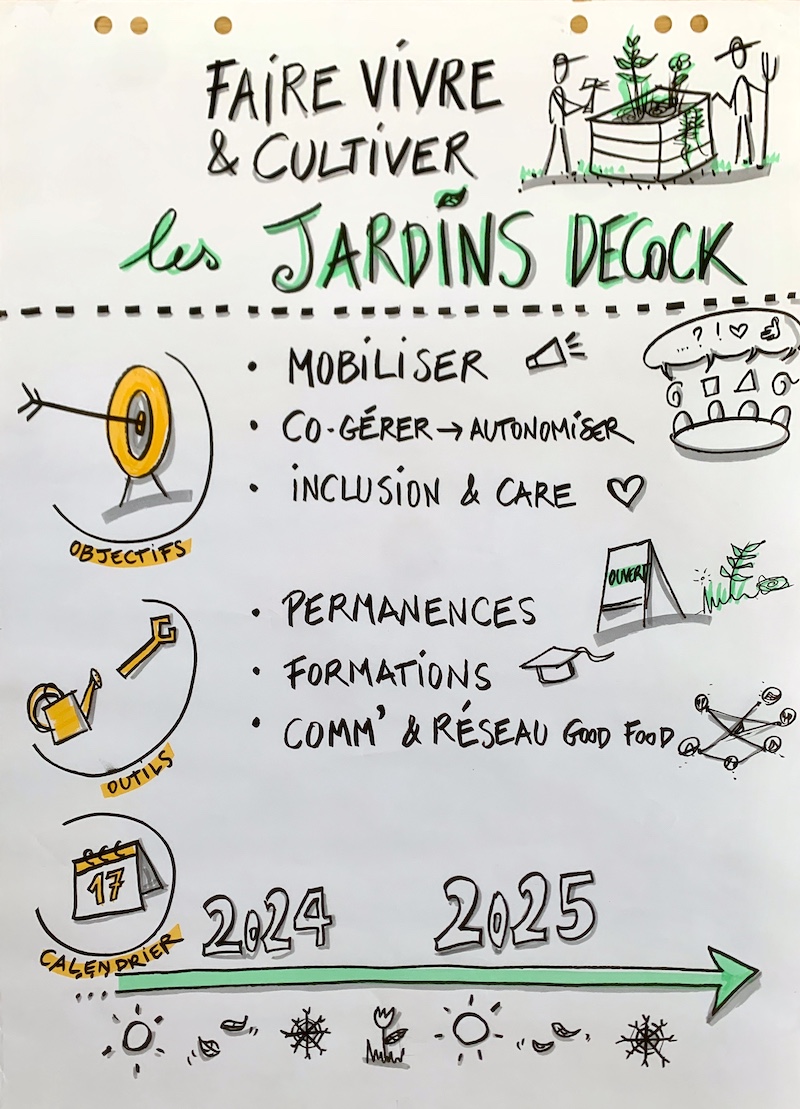 FAIRE VIVRE
& CULTIVER
les JARDINS DECOCK
... ? !
• MOBILISER
• CO-GÉRER → AUTONOMISER
• INCLUSION & CARE
OBJECTIFS
OUVERT
• PERMANENCES
• FORMATIONS
• COMM' & RÉSEAU GOOD FOOD
OUTILS
17
2024 2025
CALENDRIER
...